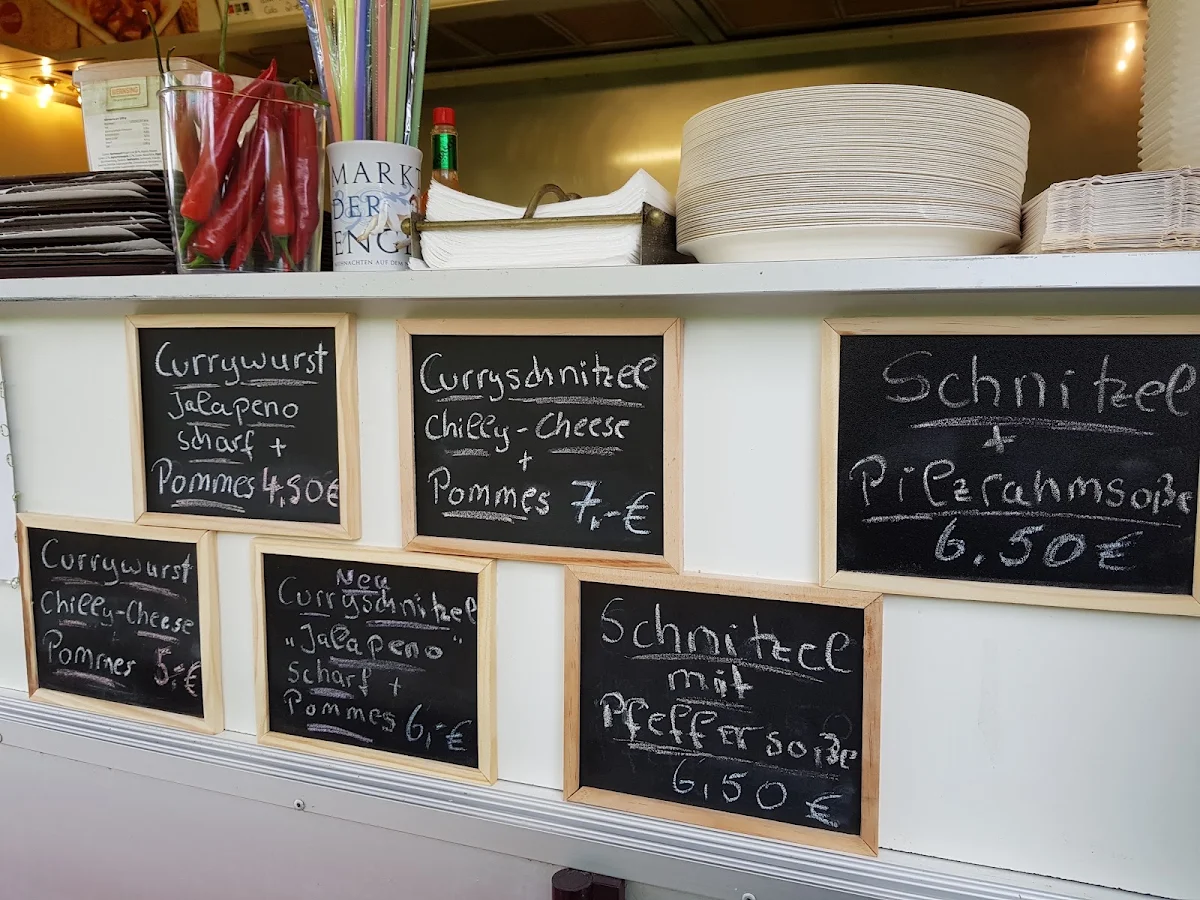 MARKT
DER
ENGEL
Currywurst
Jalapeno
scharf +
Pommes 4,50€
Curryschnitzel
Chilly-Cheese
+
Pommes 7,-€
Schnitzel
+
Pilzrahmsoße
6,50€
Currywurst
Chilly-Cheese
Pommes 5,-€
Neu
Curryschnitzel
"Jalapeno"
scharf +
Pommes 6,-€
Schnitzel
mit
Pfeffersoße
6,50 €